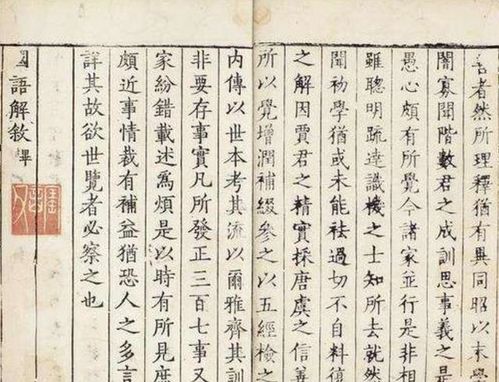 善者然所理釋猶有異同昭以末學
闇寡聞階數君之成訓思事義之是
愚心頗有所覺今諸家並行是非相
雖聰明疏達識機之士知所去就然
聞初學猶或未能袪過切不自料復
之解因賈君之精實採唐虞之信善
所以覺增潤補綴參之以五經檢之
内傳以世本考其流以爾雅齊其訓
非要存事實凡所發正三百七事又
家紛錯載述爲煩是以時有所見庶
頗近事情裁有補益猶恐人之多言
詳其故欲世覽者必察之也
國語解敘畢